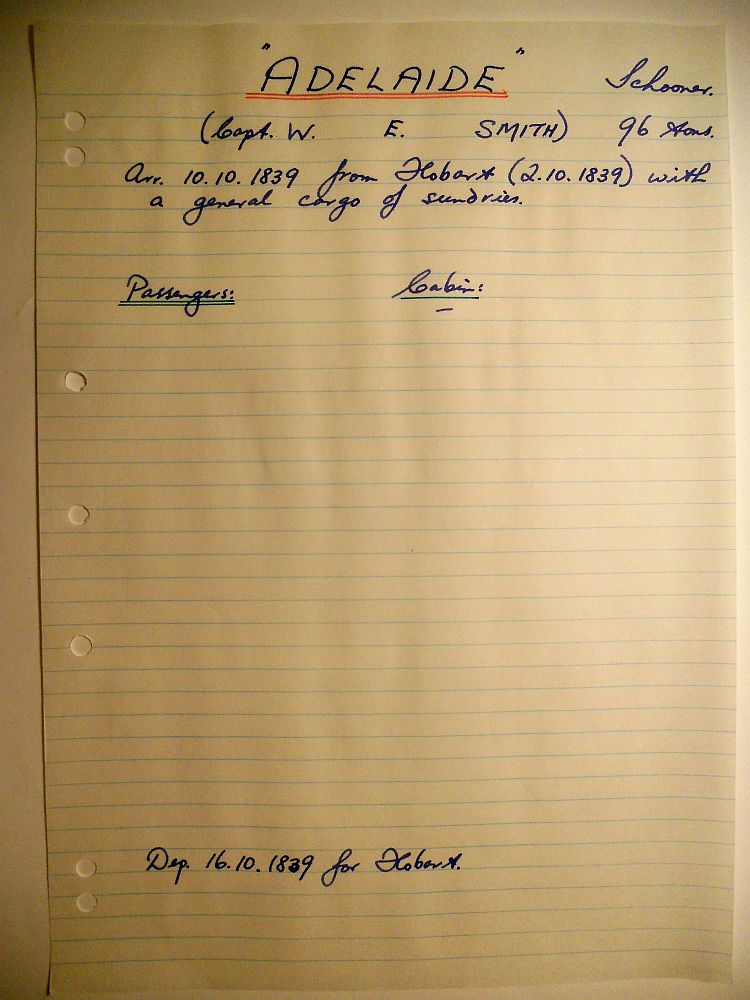 "ADELAIDE" Schooner.
(Capt. W. E. SMITH) 96 tons.
Arr. 10.10.1839 from Hobart (2.10.1839) with
a general cargo of sundries.
Passengers: Cabin:
–
Dep. 16.10.1839 for Hobart.